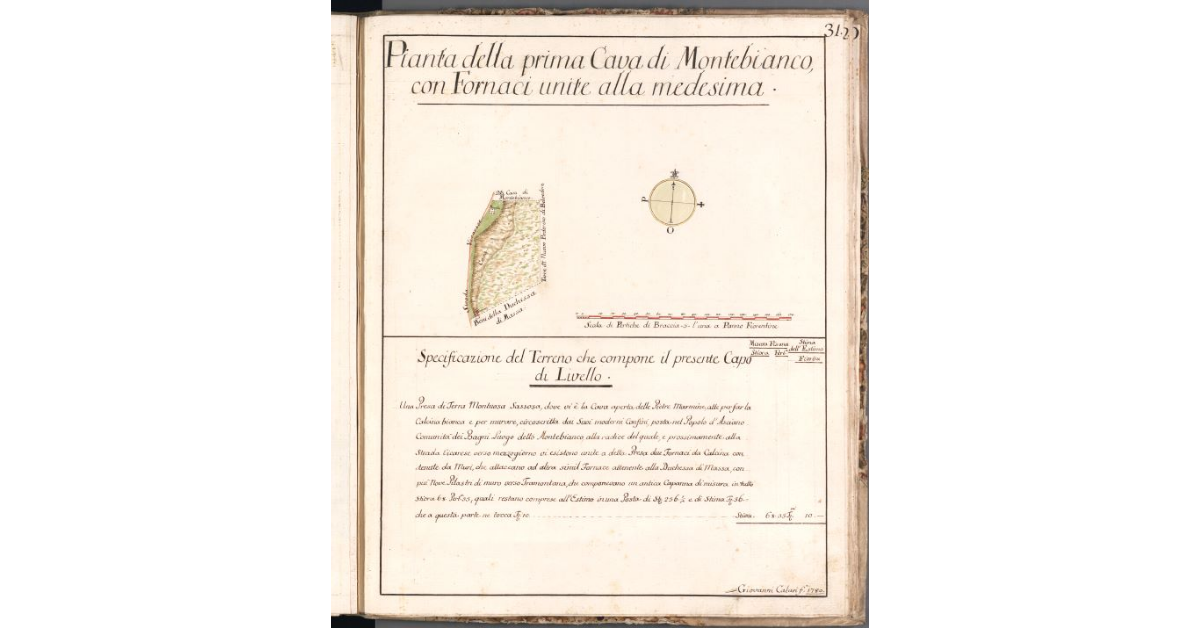 Pianta della prima Cava di Montebianco,
con Fornaci unite alla medesima.
P
O
Beni della Duchessa
di Massa
Scala di Pertiche di Braccia 5 l'una a Panno Fiorentino
Specificazione del Terreno che compone il presente Capo
di Livello.
Stima
dell'Estimo
Una Presa di Terra Montuosa Sassosa, dove vi è la Cava aperta delle Pietre Marmine, atte per far la
Calcina bianca e per murare, circoscritta dai Suoi moderni Confini, posta nel Popolo d'Asciano
Comunità dei Bagni Luogo detto Montebianco, alla radice del quale, e prossimamente alla
Strada verso mezzogiorno vi esistono unite a detta Presa due Fornaci da Calcina con
tenute da Muri, che attaccano ad altra simil Fornace attenente alla Duchessa di Massa, con
più Nove Pilastri di muro verso Tramontana, che componevano un antica Capanna di misura in tutto
quali restano comprese all'Estimo in una Posta di
che a questa parte ne tocca
Giovanni Calusi